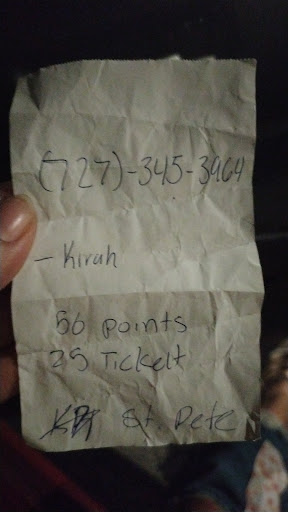 (727)-345-3964
- Kirah
56 points
25 Tickelt
St. Pete